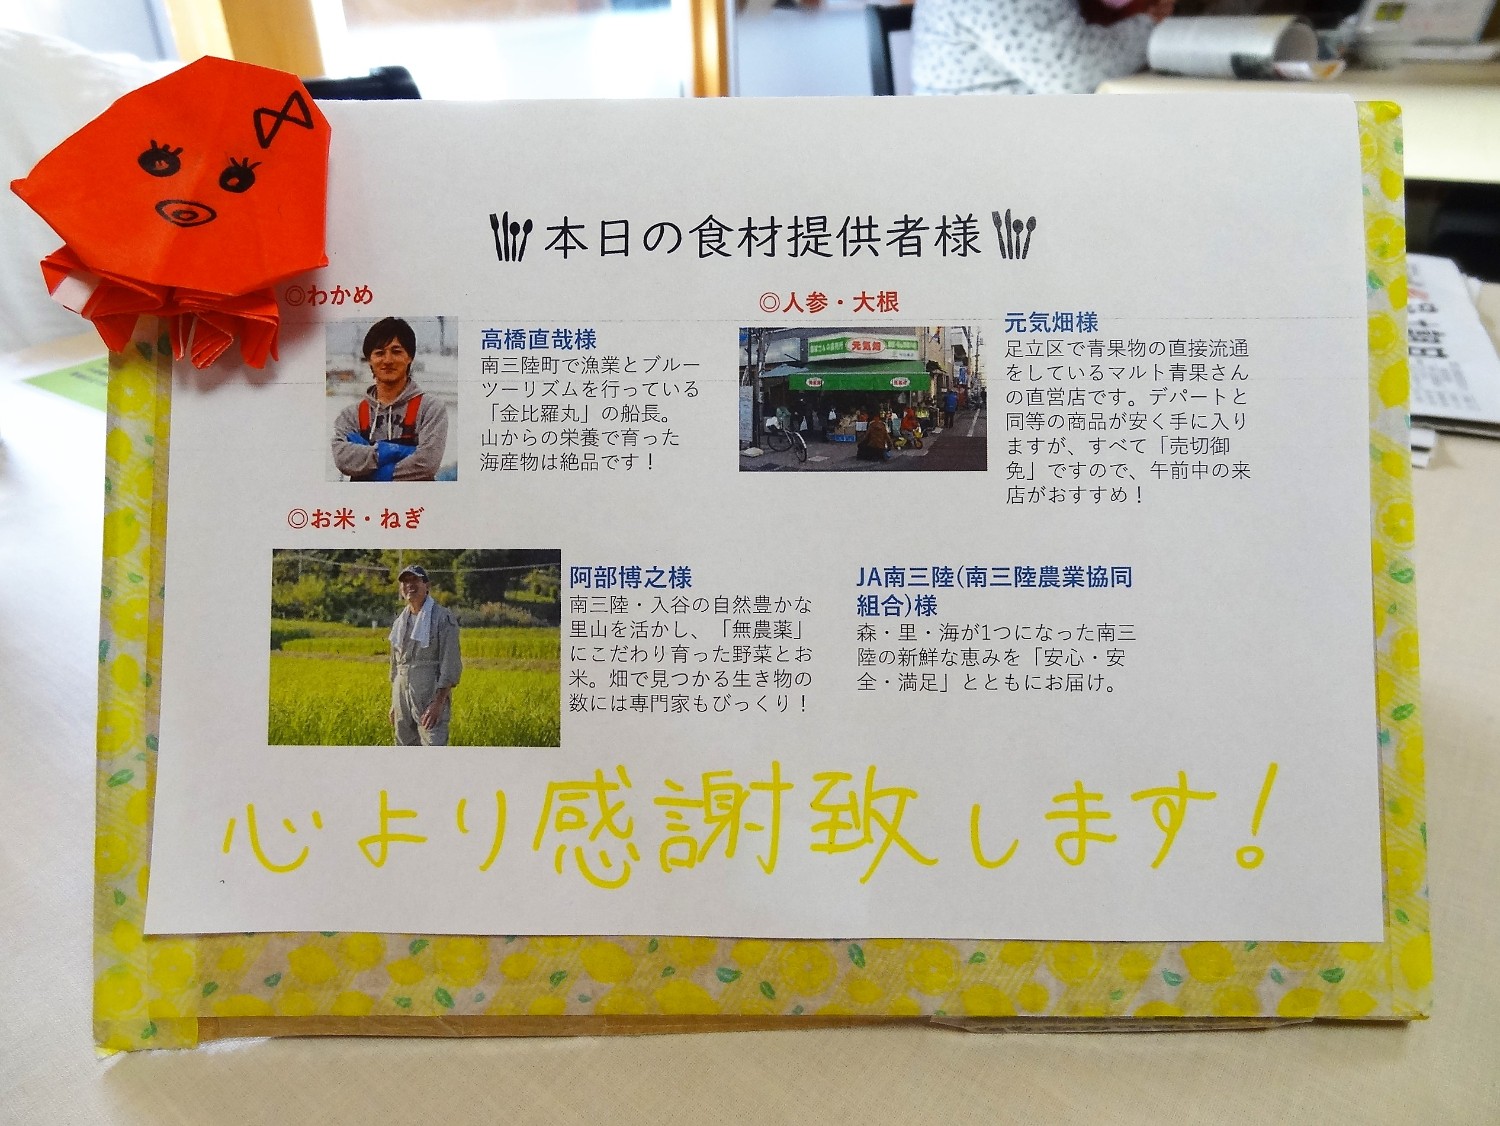 本日の食材提供者様
◎わかめ
高橋直哉様
南三陸町で漁業とブルー
ツーリズムを行っている
「金比羅丸」の船長。
山からの栄養で育った
海産物は絶品です！
◎人参・大根
元気畑
元気畑様
足立区で青果物の直接流通
をしているマルト青果さん
の直営店です。デパートと
同等の商品が安く手に入り
ますが、すべて「売切御
免」ですので、午前中の来
店がおすすめ！
◎お米・ねぎ
阿部博之様
南三陸・入谷の自然豊かな
里山を活かし、「無農薬」
にこだわり育った野菜とお
米。畑で見つかる生き物の
数には専門家もびっくり！
JA南三陸(南三陸農業協同
組合)様
森・里・海が1つになった南三
陸の新鮮な恵みを「安心・安
全・満足」とともにお届け。
心より感謝致します！